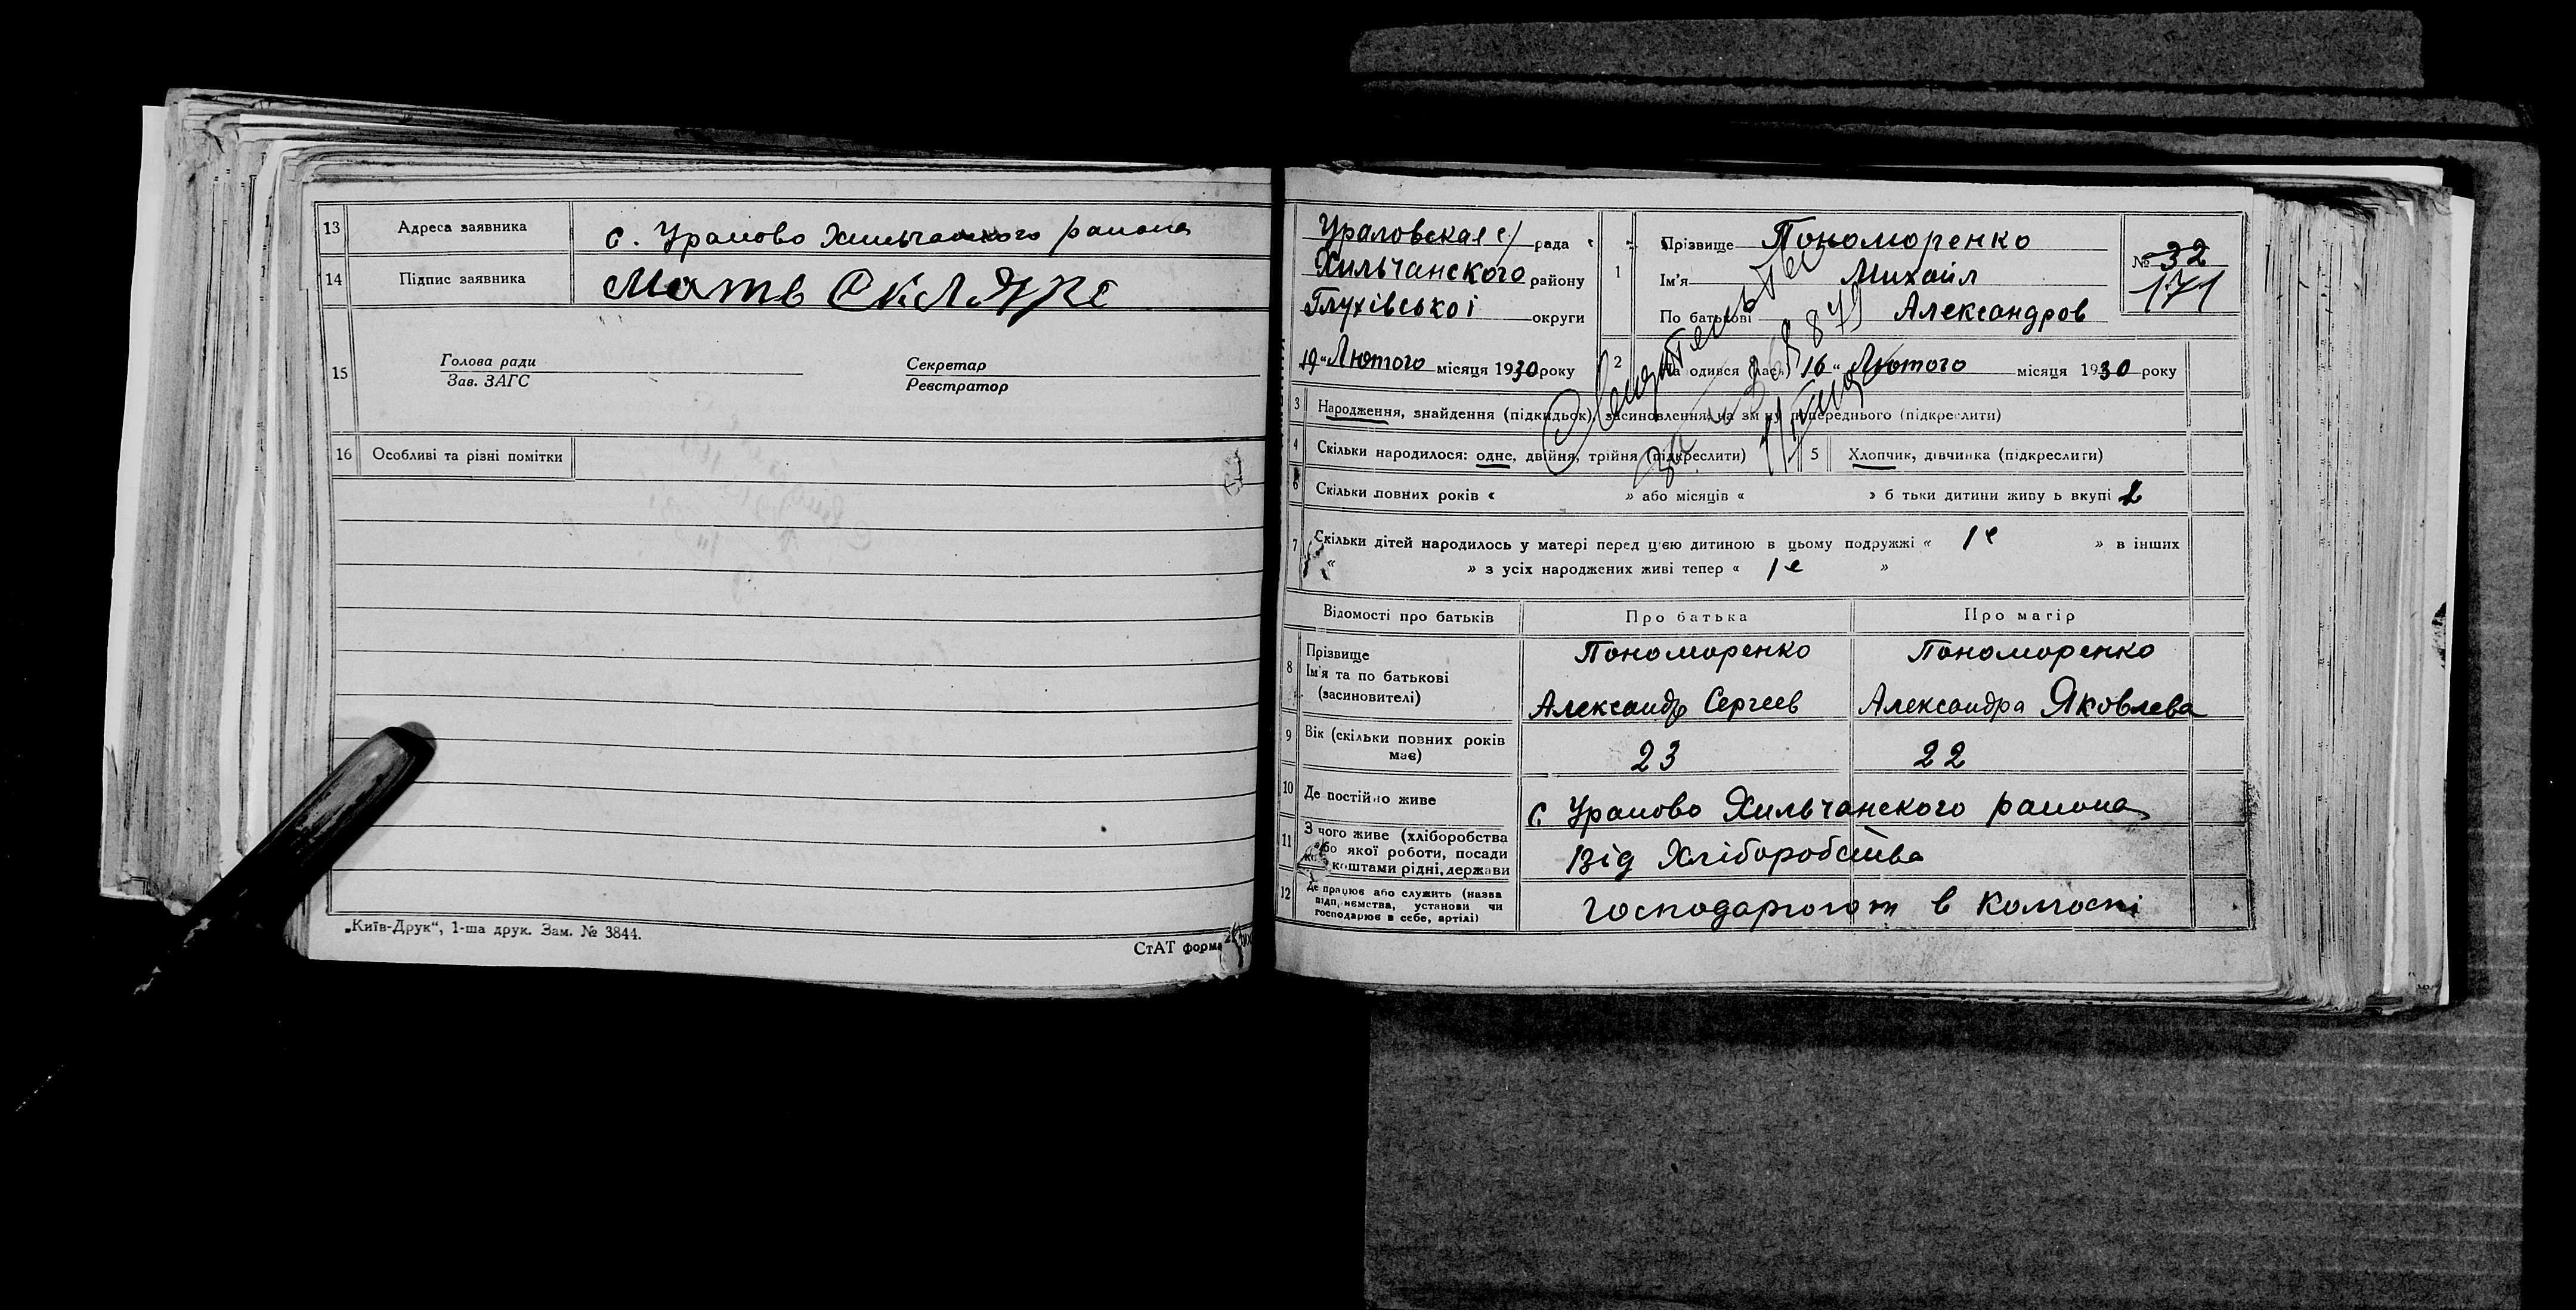 13 Адреса заявника с. Ураиово Хильчанского района
14 Підпис заявника Мотв СКЛЯРС
15 Голова ради Секретар
Зав. ЗАГС Реєстратор
16 Особливі та різні помітки
„Київ-Друк“, 1-ша друк. Зам. № 3844.
СтАТ форма
Ураловская с/ рада
Хильчанского району
Глухівської округи
19 „ Лютого місяця 1930 року
1 Прізвище Пономоренко
Ім'я Михаил
По батькові Александров
№ 32
171
2 На одився (лас) 16 „ Лютого місяця 1930 року
3 Народження, знайдення (підкидьок), засиновлення, на зміну попереднього (підкреслити)
4 Скільки народилося: одне, двійня, трійня (підкреслити) 5 Хлопчик, дівчинка (підкреслити)
6 Скільки повних років « » або місяців « » б тьки дитини живу ь вкупі 2
7 Скільки дітей народилось у матері перед цією дитиною в цьому подружжі « 1е » в інших
« » з усіх народжених живі тепер « 1е »
Відомості про батьків Про батька Про матір
8 Прізвище Пономоренко Пономоренко
Ім'я та по батькові
(засиновителі) Александр Сергеев Александра Яковлева
9 Вік (скільки повних років має) 23 22
10 Де постійно живе с Ураиово Хильчанского района
11 З чого живе (хліборобства
або якої роботи, посади
коштами рідні, держави Від Хліборобства
12 Де працює або служить (назва
підприємства, установи чи
господарює в себе, артілі) господарюют в колгоспі